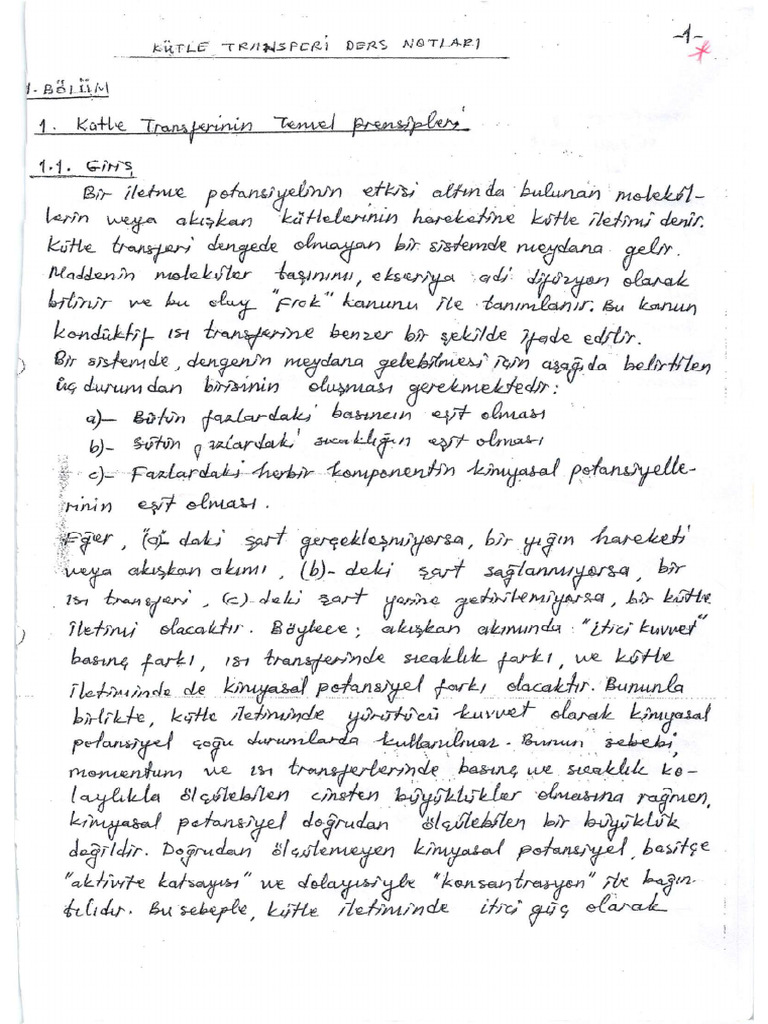 KÜTLE TRANSFERİ DERS NOTLARI
-1-
*
1. BÖLÜM
1. Kütle Transferinin Temel Prensipleri
1.1. GİRİŞ
Bir iletme potansiyelinin etkisi altında bulunan molekül-
lerin veya akışkan kütlelerinin hareketine kütle iletimi denir.
Kütle transferi dengede olmayan bir sistemde meydana gelir.
Maddenin moleküler taşınımı, ekseriya adi difüzyon olarak
bilinir ve bu olay "Fick" kanunu ile tanımlanır. Bu kanun
kondüktif ısı transferine benzer bir şekilde ifade edilir.
Bir sistemde, dengenin meydana gelebilmesi için aşağıda belirtilen
üç durumdan birisinin oluşması gerekmektedir:
a)- Bütün fazlardaki basıncın eşit olması
b)- Bütün fazlardaki sıcaklığın eşit olması
c)- Fazlardaki herbir komponentin kimyasal potansiyelle-
rinin eşit olması.
Eğer, (a)- daki şart gerçekleşmiyorsa, bir yığın hareketi
veya akışkan akımı, (b)- deki şart sağlanmıyorsa, bir
ısı transferi, (c)-deki şart yerine getirilemiyorsa, bir kütle
iletimi olacaktır. Böylece; akışkan akımında "itici kuvvet"
basınç farkı, ısı transferinde sıcaklık farkı, ve kütle
iletiminde de kimyasal potansiyel farkı olacaktır. Bununla
birlikte, kütle iletiminde yürütücü kuvvet olarak kimyasal
potansiyel çoğu durumlarda kullanılmaz. Bunun sebebi,
momentum ve ısı transferlerinde basınç ve sıcaklık ko-
laylıkla ölçülebilen cinsten büyüklükler olmasına rağmen,
kimyasal potansiyel doğrudan ölçülebilen bir büyüklük
değildir. Doğrudan ölçülemeyen kimyasal potansiyel, basitçe
"aktivite katsayısı" ve dolayısiyle "konsantrasyon" ile bağın-
tılıdır. Bu sebeple, kütle iletiminde itici güç olarak